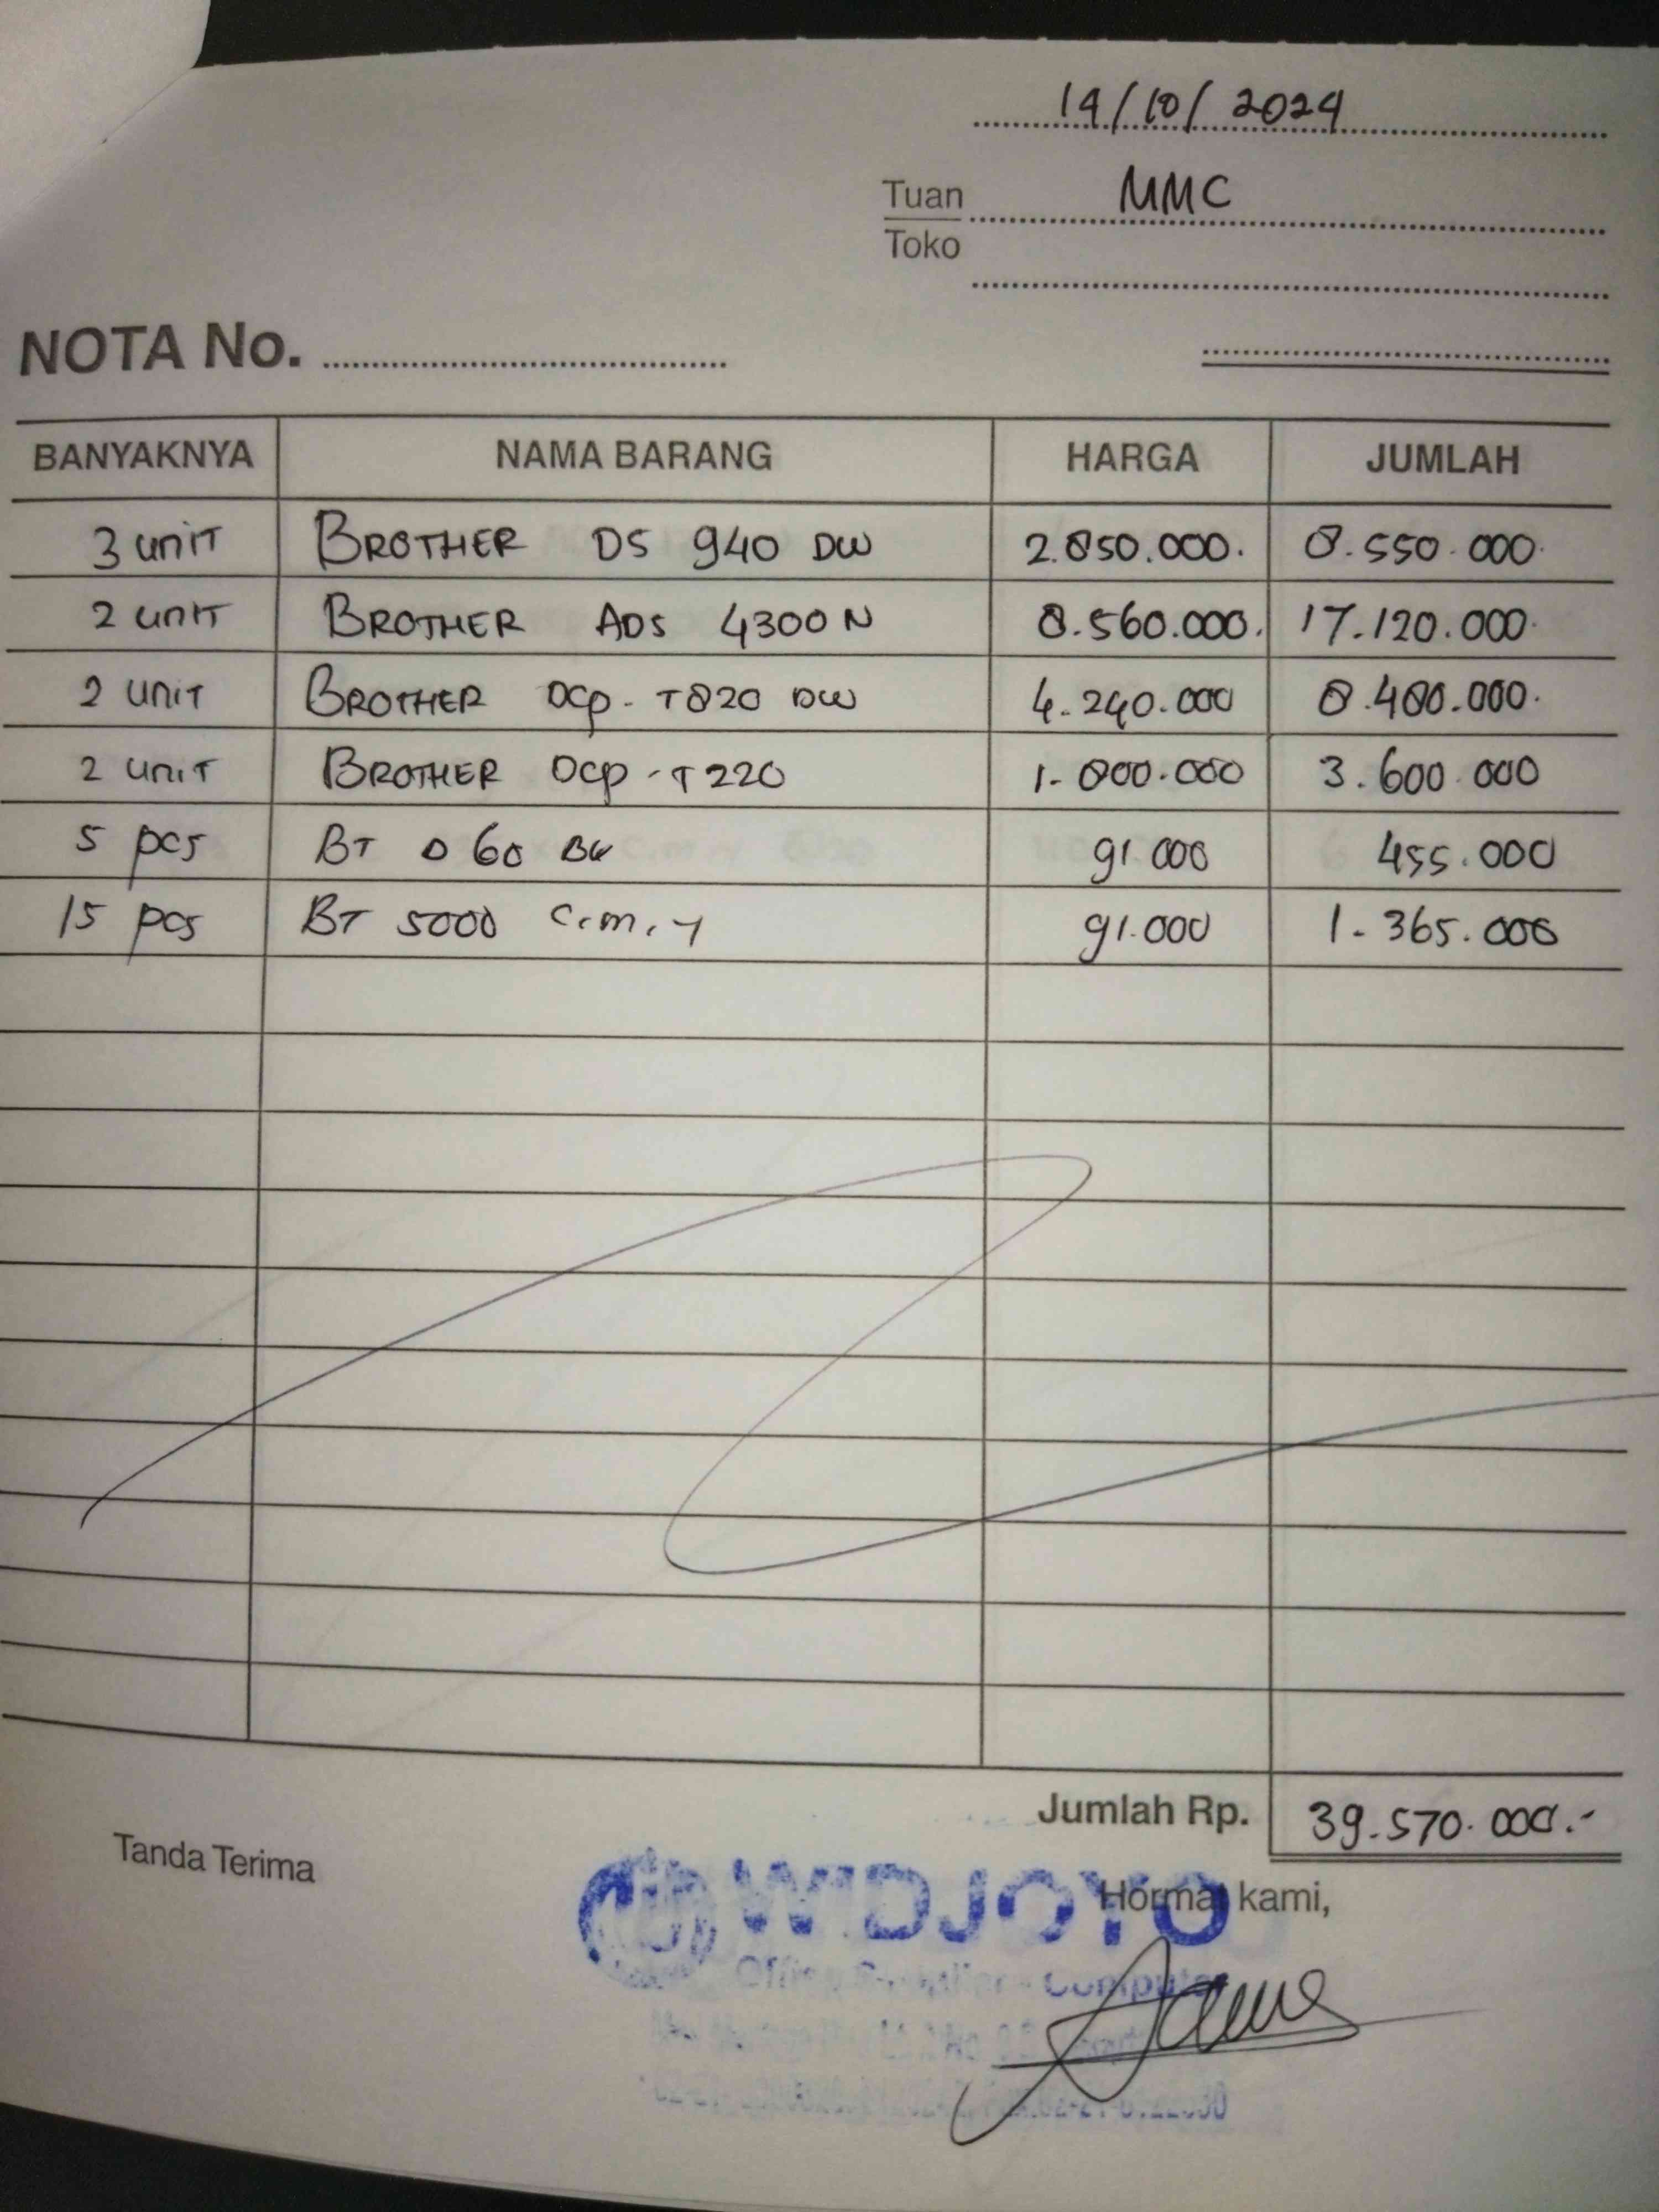 14/10/2024
Tuan MMC
Toko
NOTA No.
BANYAKNYA NAMA BARANG HARGA JUMLAH
3 unit BROTHER DS 940 DW 2.850.000. 8.550.000.
2 unit BROTHER ADS 4300 N 8.560.000. 17.120.000.
2 unit BROTHER DCP-T820 DW 4.240.000 8.480.000.
2 unit BROTHER DCP-T220 1.800.000 3.600.000
5 pcs BT D 60 BK 91.000 455.000
15 pcs BT 5000 C.M.Y 91.000 1.365.000
Jumlah Rp. 39.570.000.-
Tanda Terima
WIDJOYO
Hormat kami,
Computer